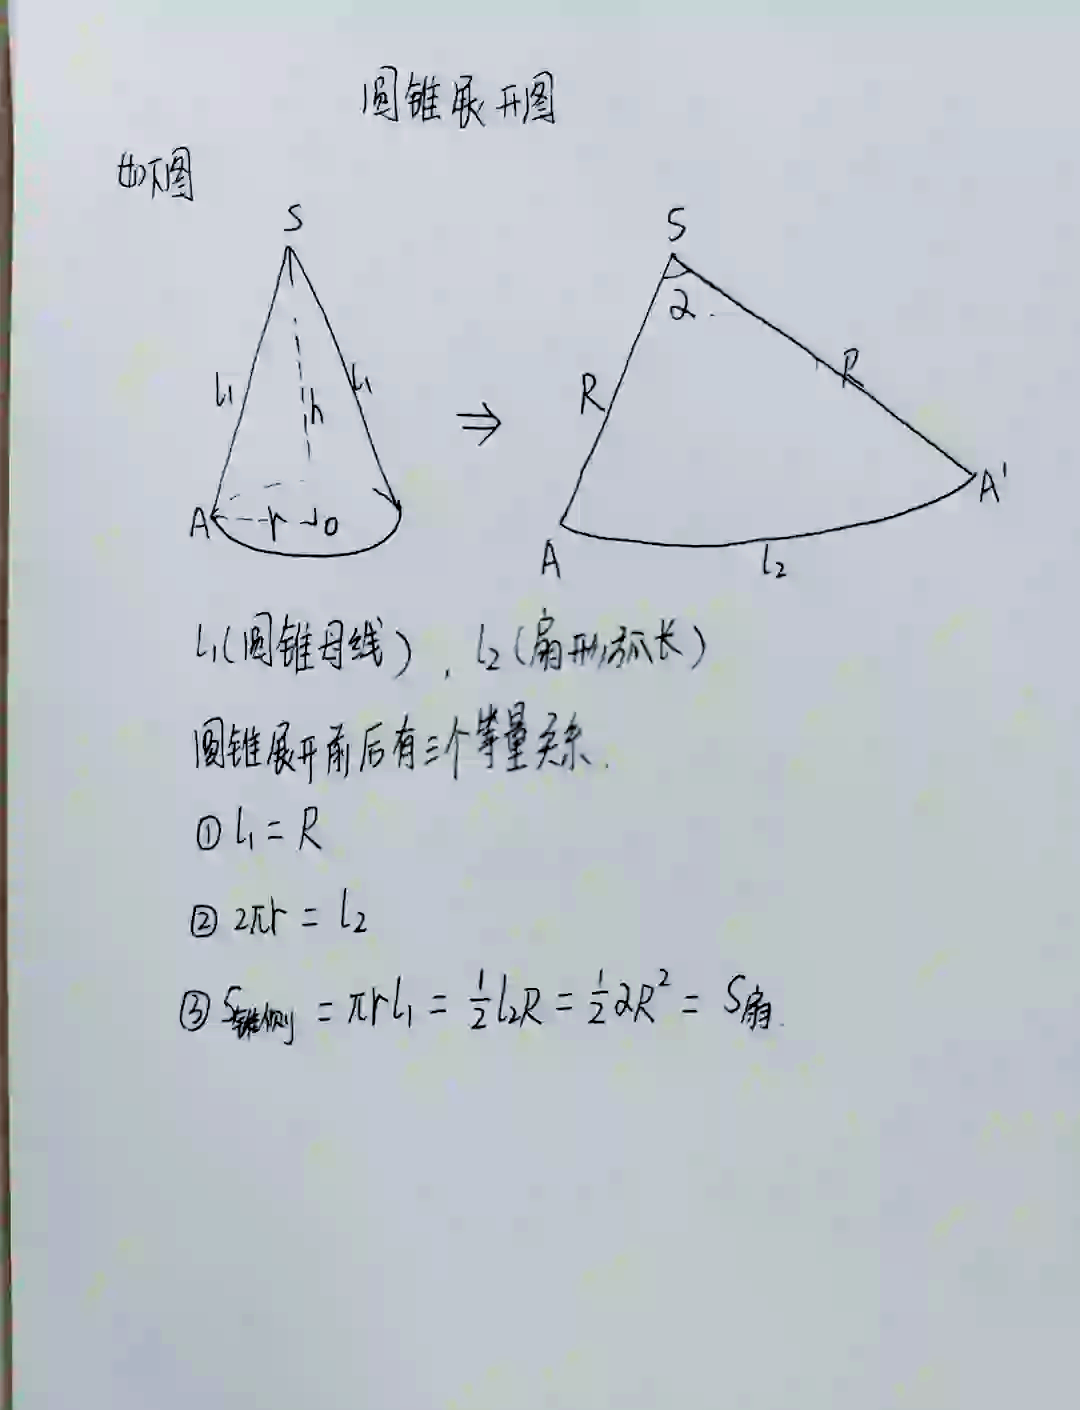 圆锥展开图
如下图
S
S
α
l₁
l₁
h
⇒
R
R
A
r
O
A
A'
l₂
l₁(圆锥母线), l₂(扇形弧长)
圆锥展开前后有三个等量关系.
① l₁ = R
② 2πr = l₂
③ S锥侧 = πrl₁ = ½l₂R = ½αR² = S扇.